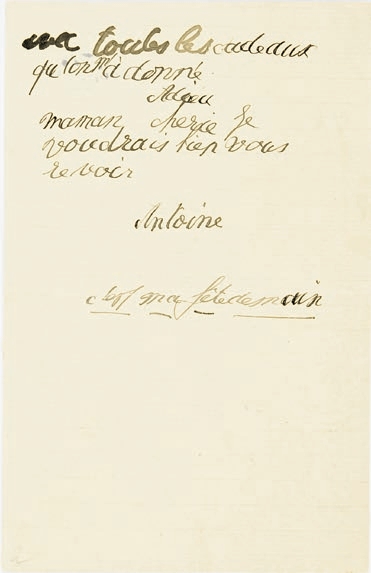 avec toutes les cadeaux
qu'on m'a donné.
Adieu
maman cherie Je
voudrais bien vous
revoir
Antoine
c'est ma fête demain